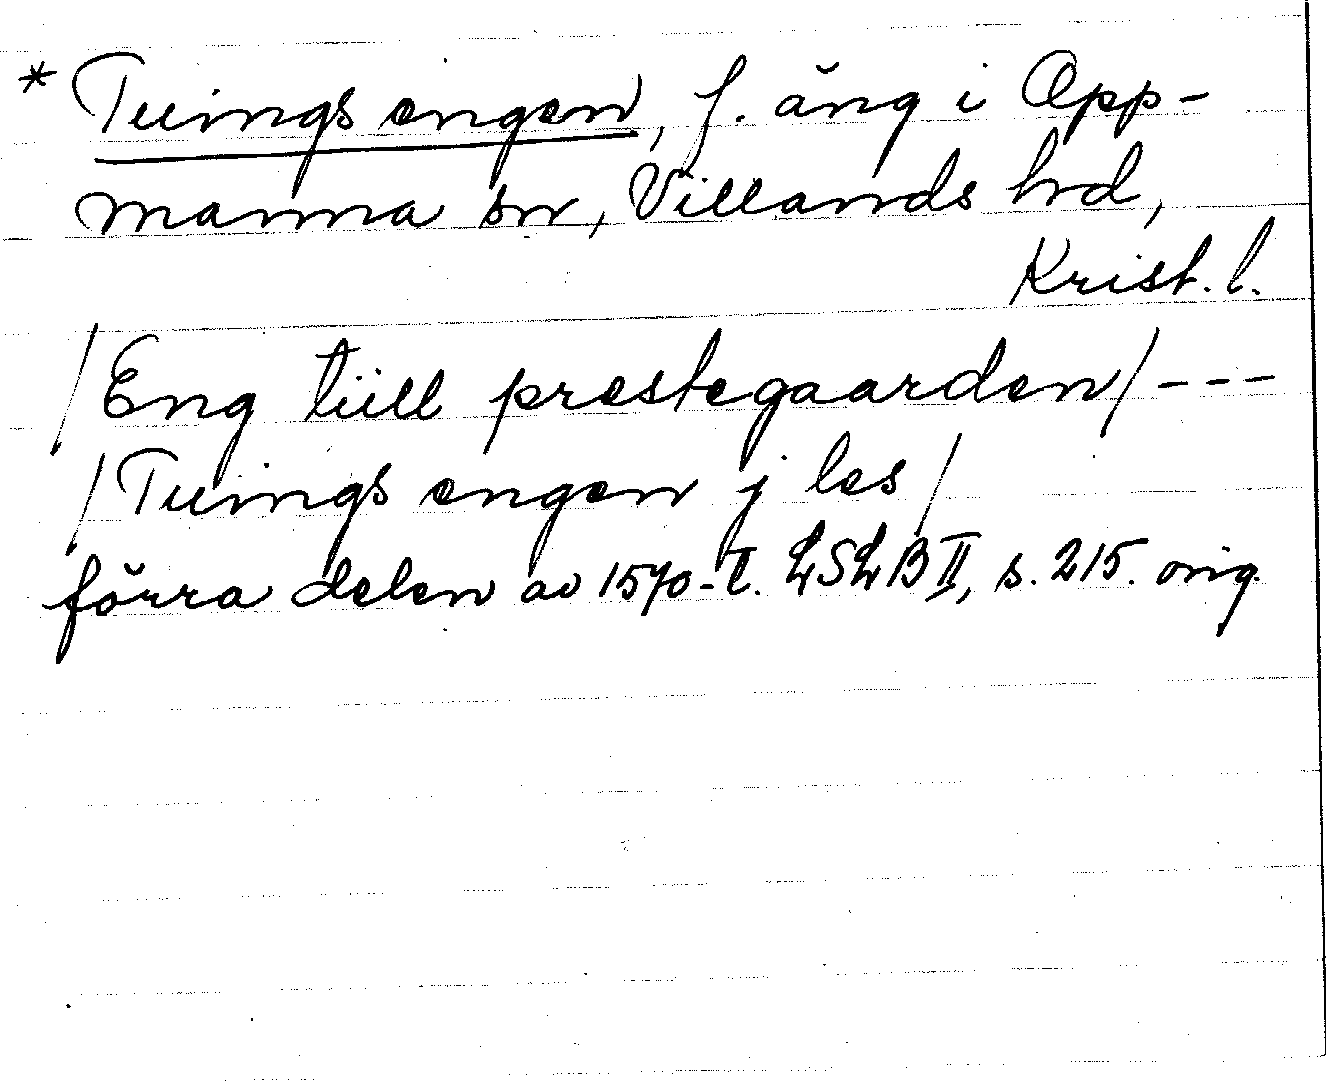 * Tuings engen, f. äng i Opp-
manna sn, Villands hd,
Krist. l.
/Eng tüll prestegaarden/---
/Tuings engen j les/
förra delen av 1570-t. LSLB II, s. 215. orig.